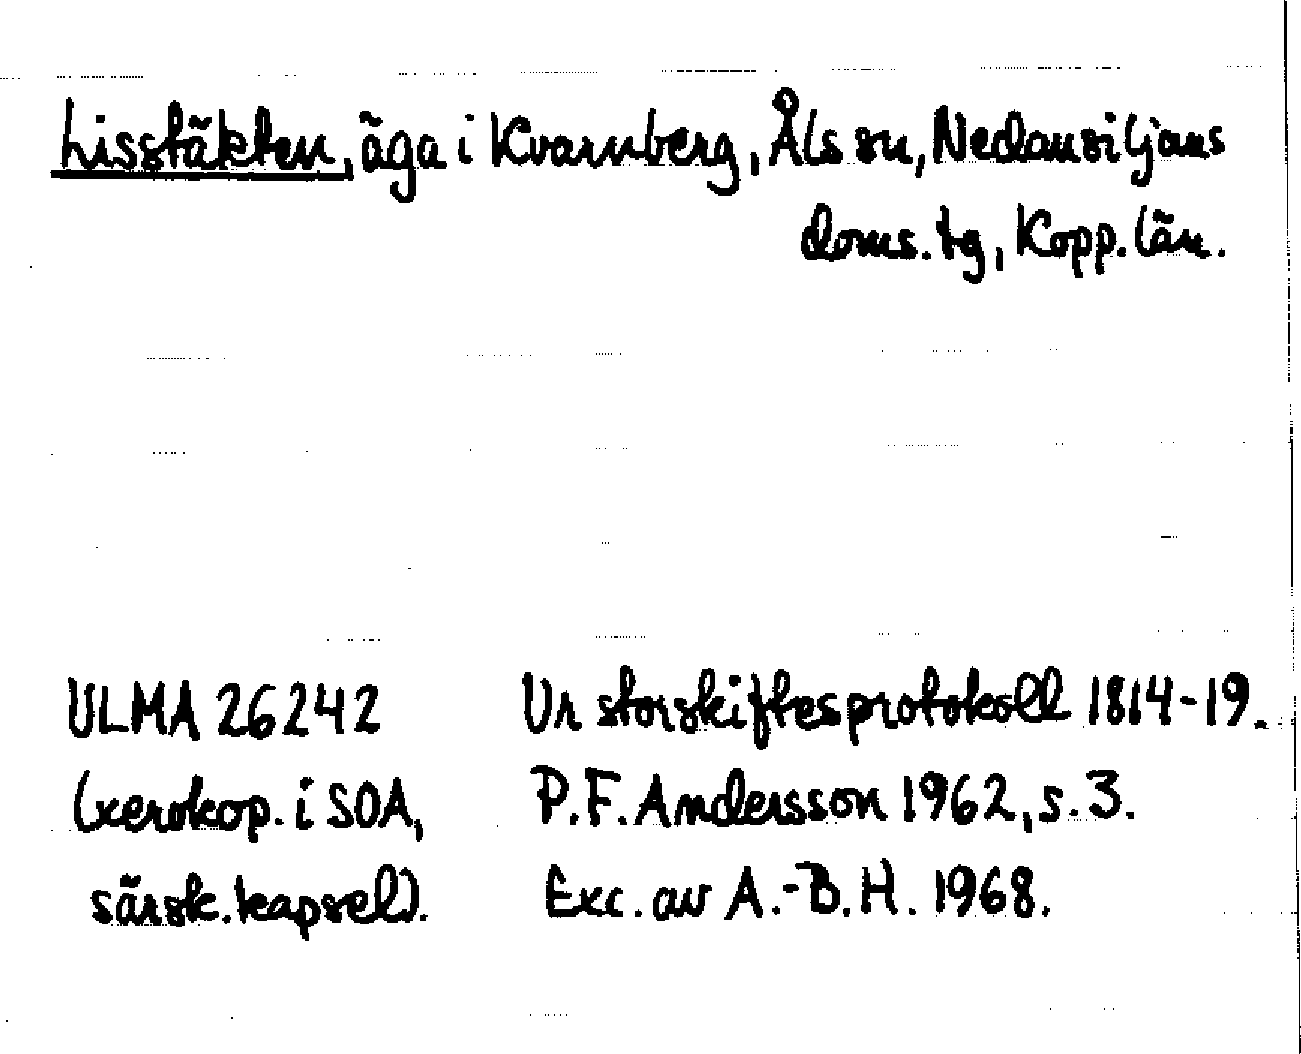 Lisstäkten, äga i Kvarnberg, Åls sn, Nedansiljans
doms.tg, Kopp. län.
ULMA 26242
(xerokop. i SOA,
särsk. kapsel).
Ur storskiftesprotokoll 1814-19.
P.F. Andersson 1962, s. 3.
Exc. av A.-B. H. 1968.